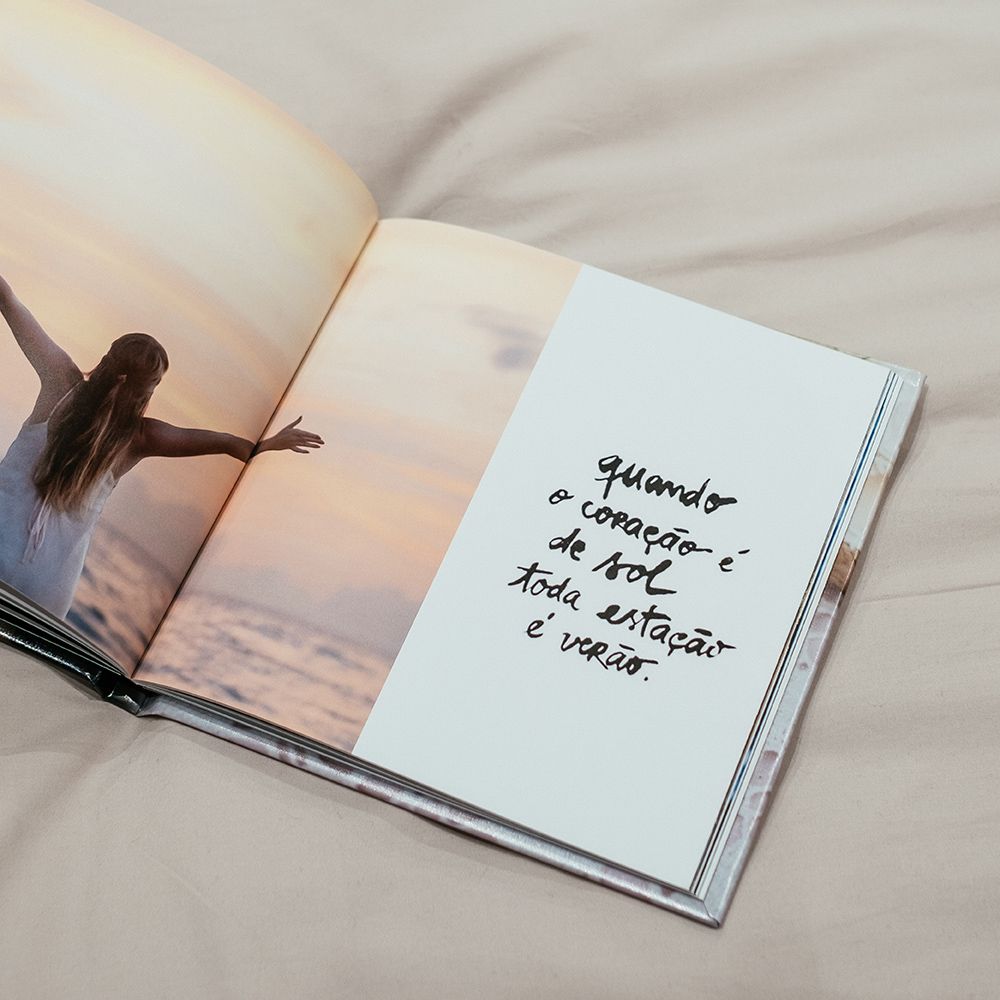 quando
o coração é
de sol
toda estação
é verão.